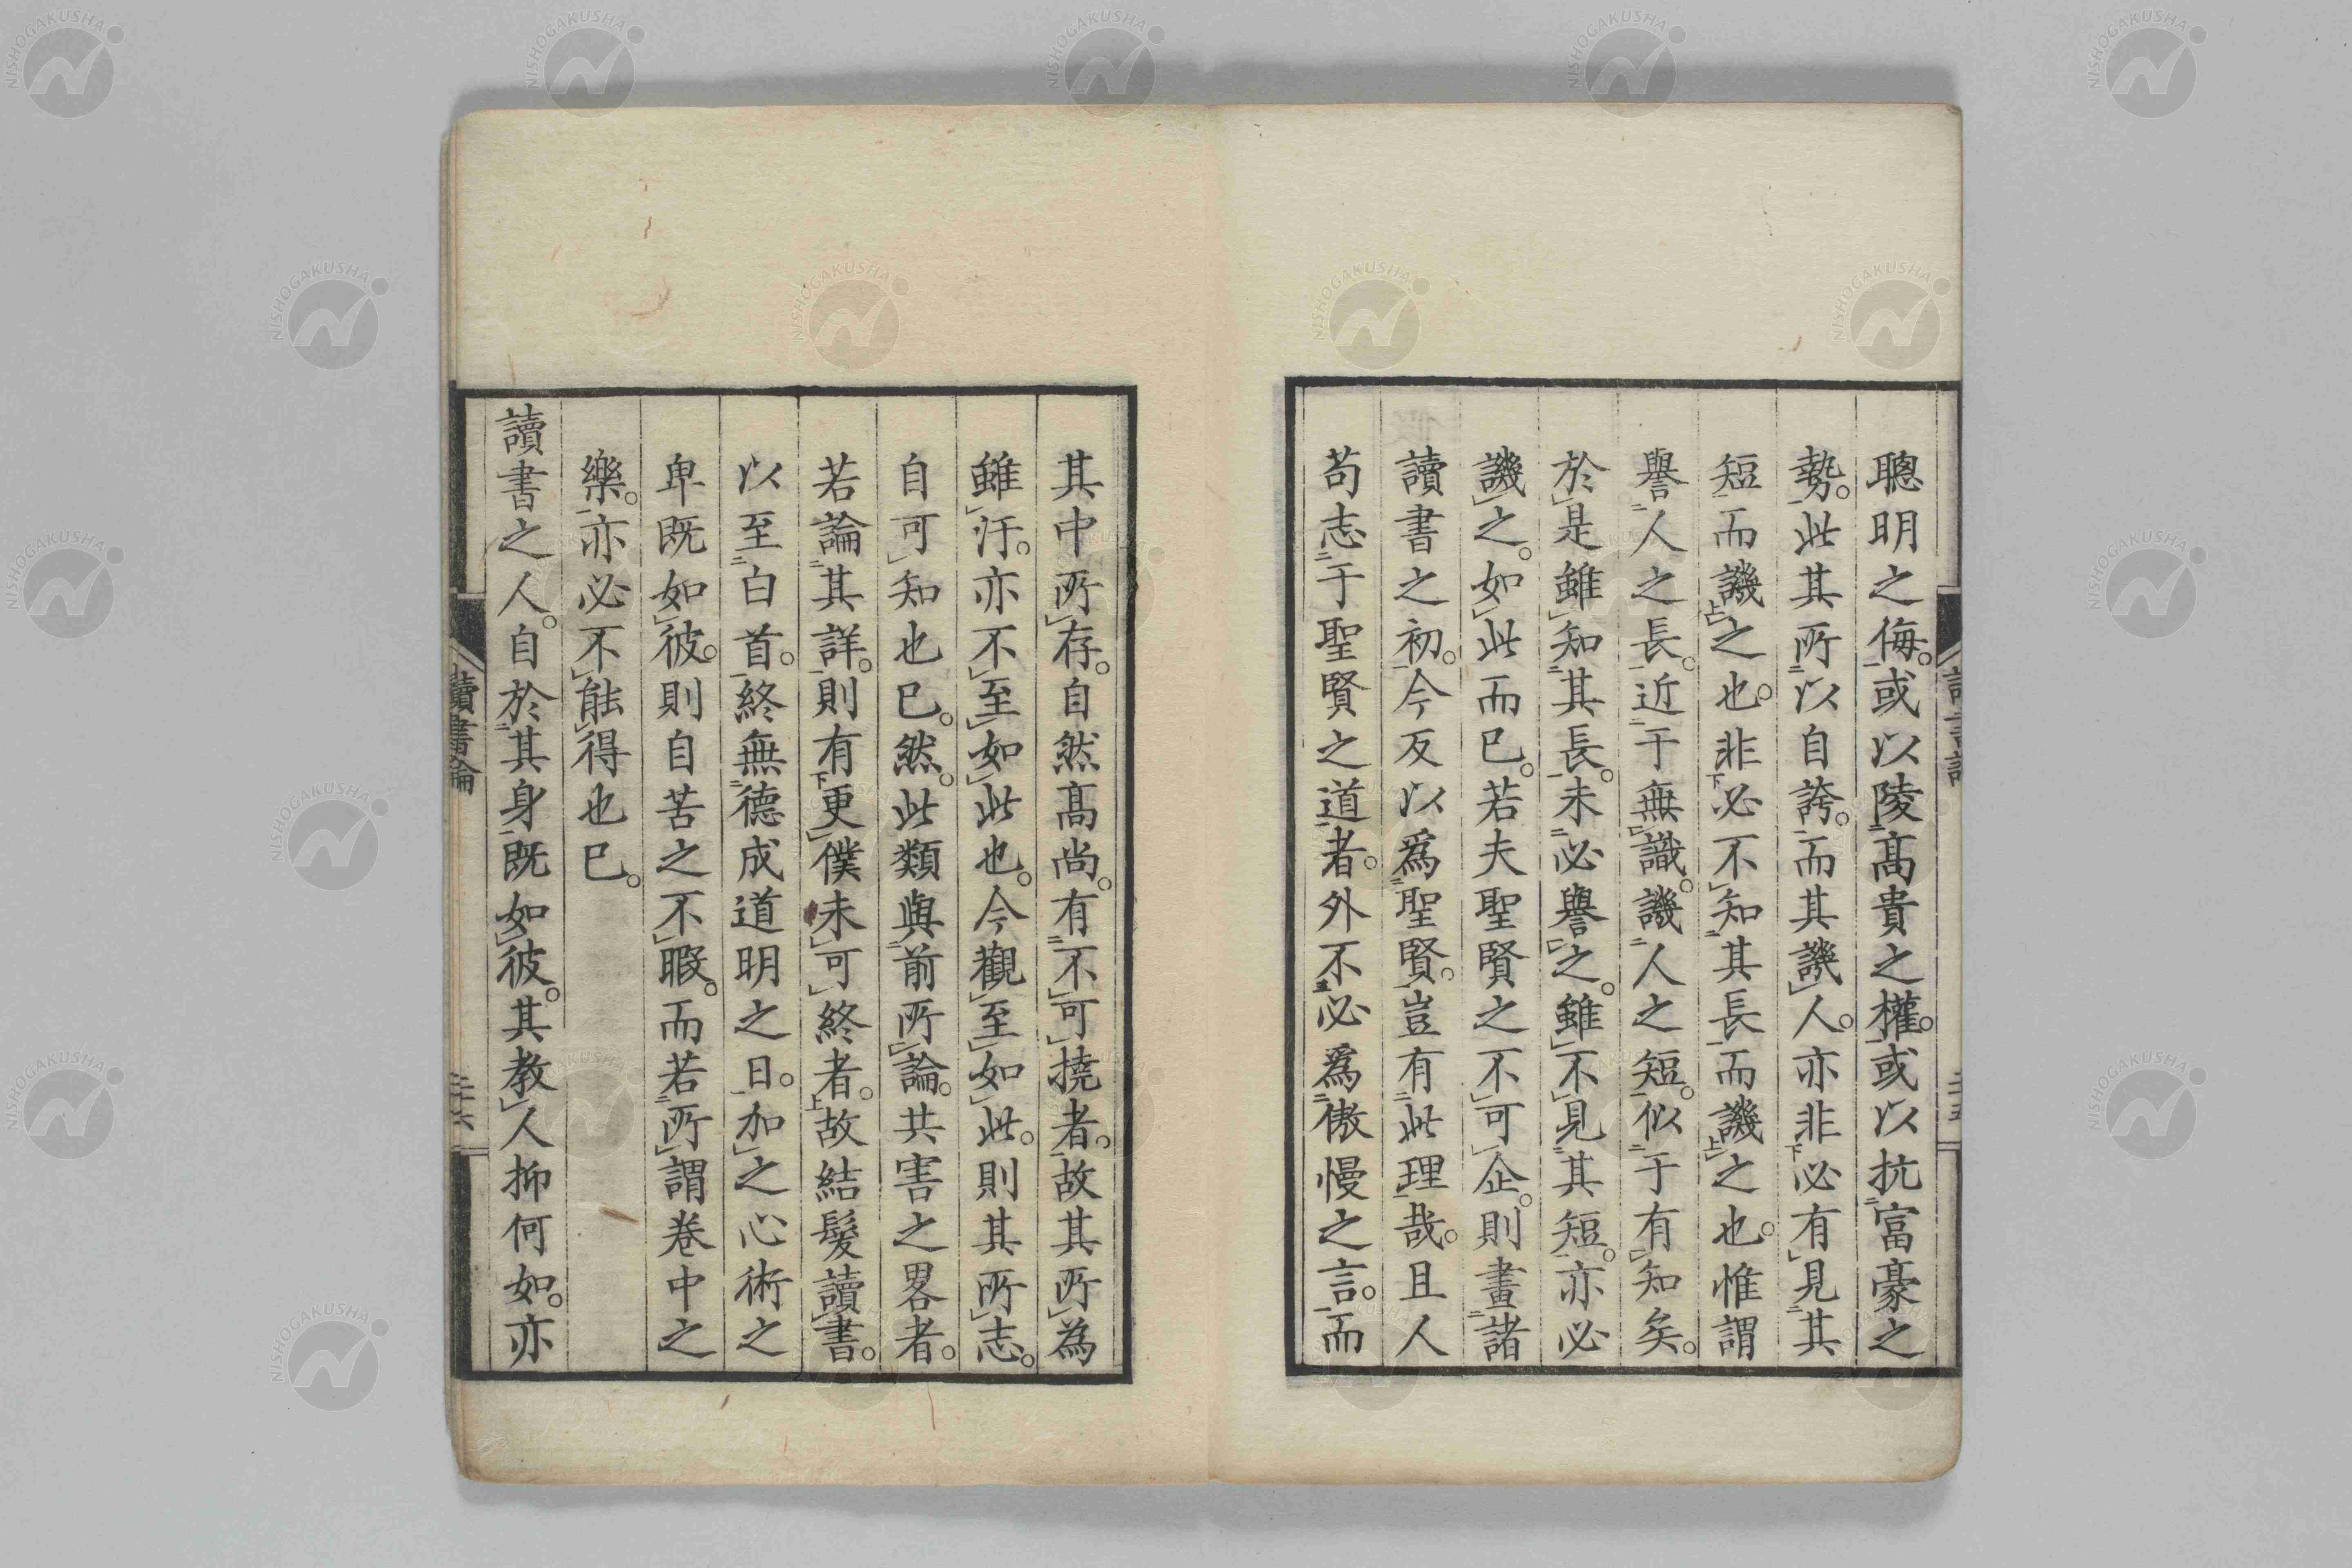 聰明之侮。或以陵高貴之權。或以抗富豪之
勢。此其所以自誇。而其譏人。亦非必有見其
短而譏之也。非必不知其長而譏之也。惟謂
譽人之長。近于無識。譏人之短。似于有知矣。
於是雖知其長。未必譽之。雖不見其短。亦必
譏之。如此而已。若夫聖賢之不可企。則畫諸
讀書之初。今反以爲聖賢。豈有此理哉。且人
苟志于聖賢之道者。外不必爲傲慢之言。而
其中所存。自然高尚。有不可撓者。故其所為
雖汙。亦不至如此也。今觀至如此。則其所志。
自可知也已。然。此類與前所論。共害之畧者。
若論其詳。則有更僕未可終者。故結髮讀書。
以至白首。終無德成道明之日。加之心術之
卑既如彼。則自苦之不暇。而若所謂卷中之
樂。亦必不能得也已。
讀書之人。自於其身既如彼。其教人抑何如。亦
讀書論
二十六
NISHOGAKUSHA